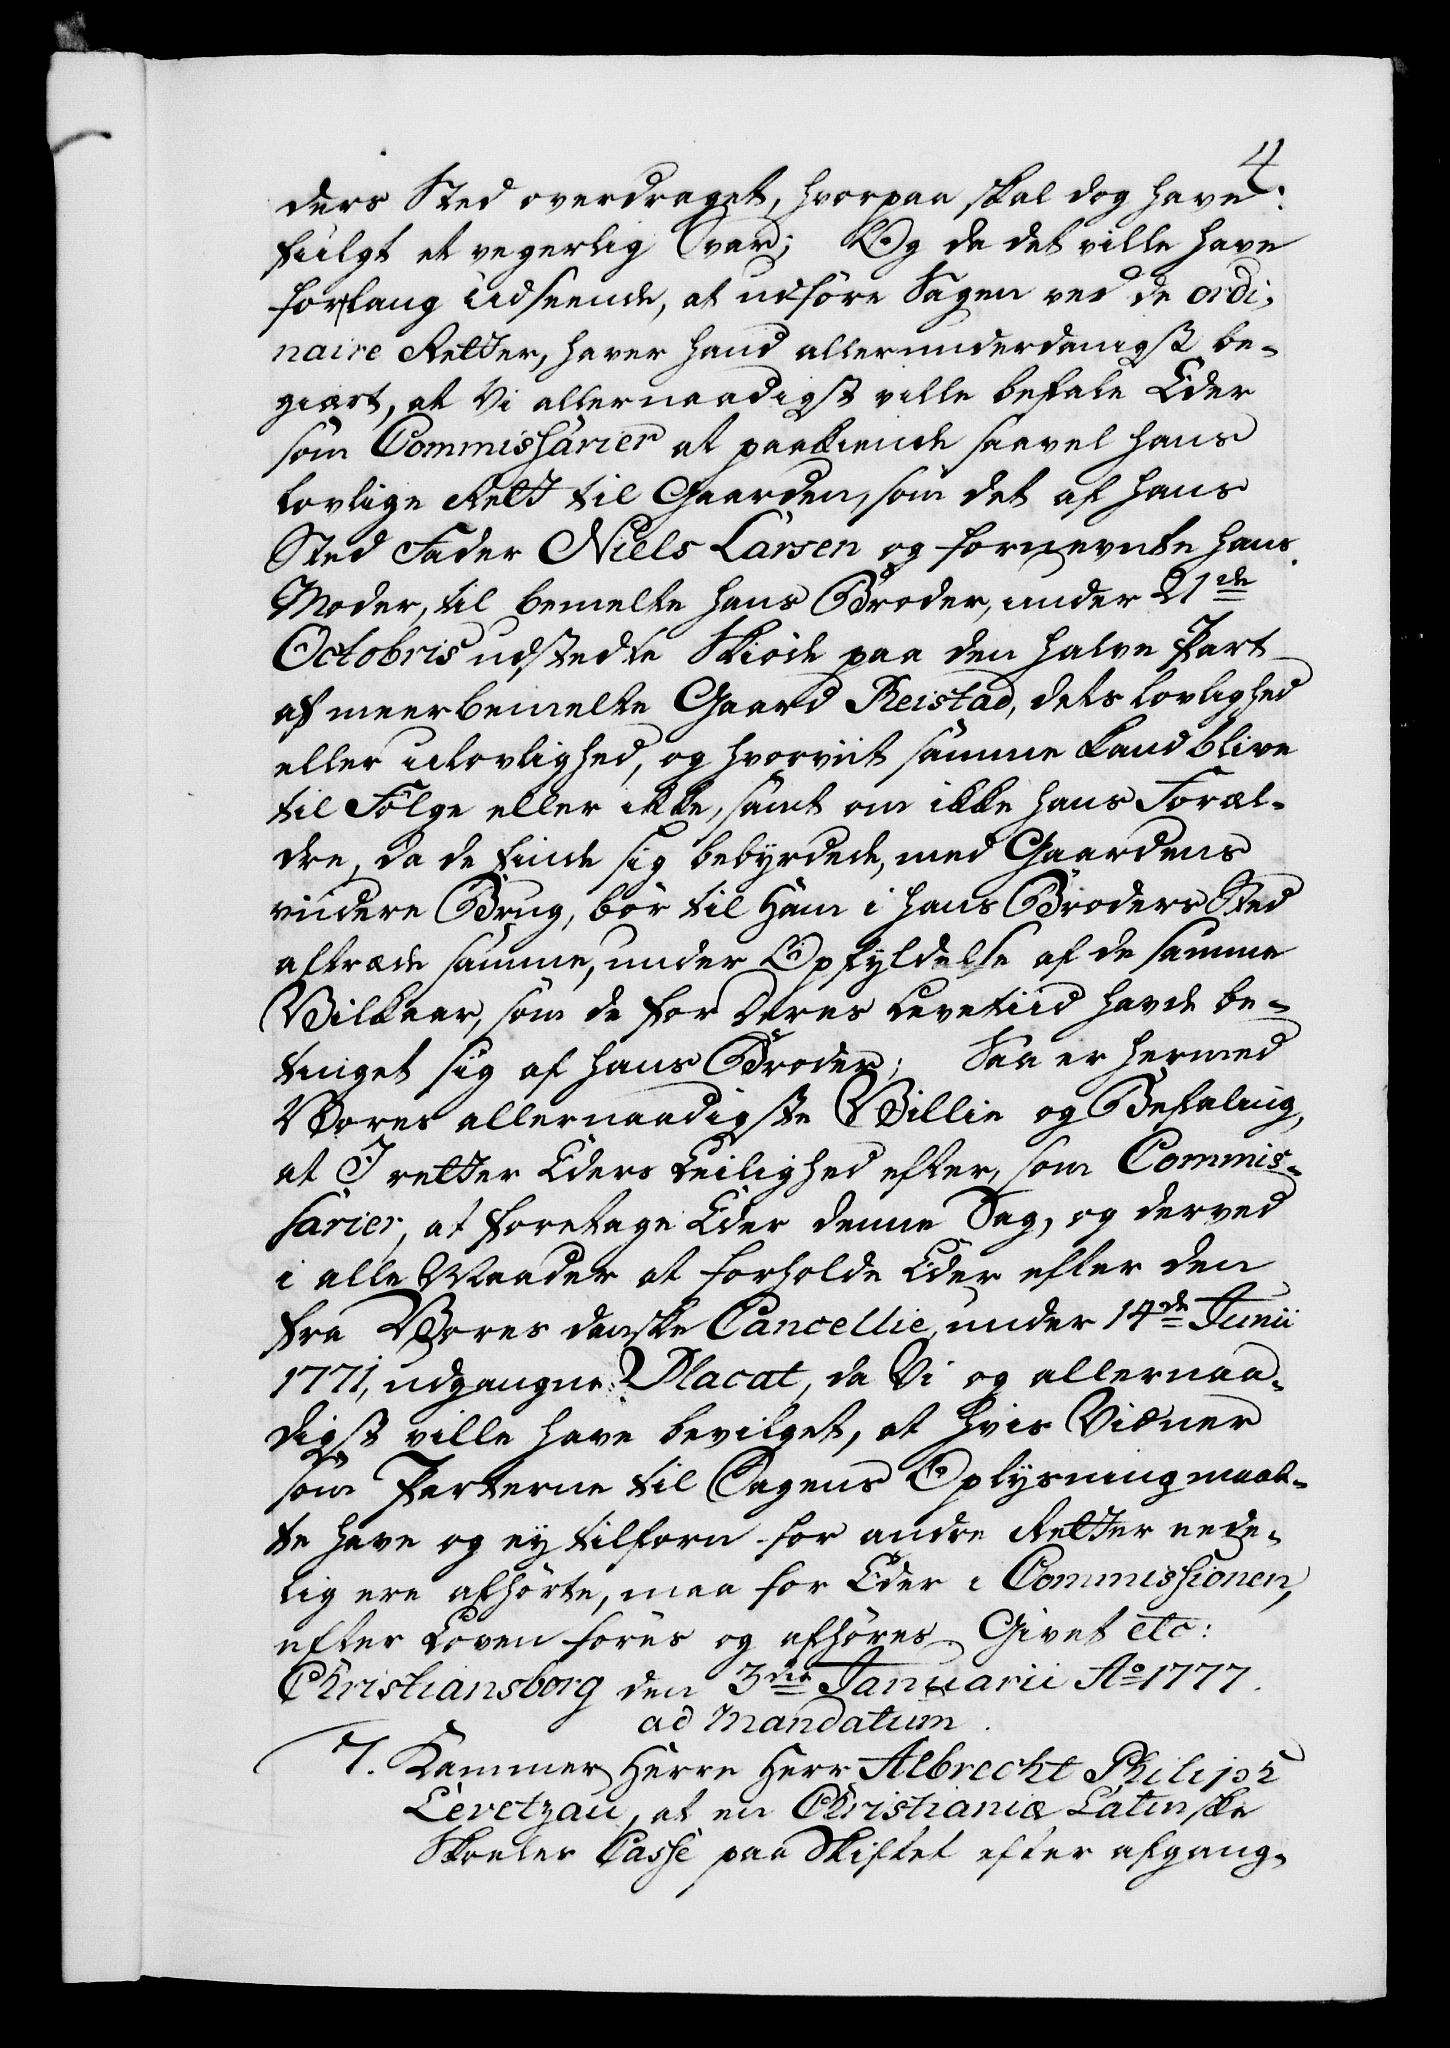 4.
ders Sted overdraget, hvorpaa skal dog have
fulgt et vegerlig Svar; Og da det ville have
forlang Udseende, at udføre Sagen ved de ordi-
naire Retter, haver hand allerunderdanigst be-
giært, at Vi allernaadigst ville befale Eder
som Commissarier at paakiende saavel hans
lovlige Rett til Gaarden, som det af hans
Sted Fader Niels Larsen og fornevnte hans
Moder, til bemelte hans Broder, under 21de
Octobris udstedte Skiøde paa den halve Part
af meerbemelte Gaard Reistad, dets lovlighed
eller ulovlighed, og hvorvit samme kand blive
til Følge eller ikke, samt om ikke hans Foræl-
dre, da de finde sig bebyrdede, med Gaardens
videre Brug, bør til Ham i hans Broders Sted
aftræde samme, under Opfyldelse af de samme
Vilkaar, som de for deres Levetiid havde be-
tinget sig af hans Broder; Saa er hermed
Vores allernaadigste Villie og Befaling,
at I retter Eders Leilighed efter, som Commis-
sarier, at foretage Eder denne Sag, og derved
i alle Maader at forholde Eder efter den
fra Vores danske Cancellie, under 14de Junii
1771, udgangne Placat, da Vi og allernaa-
digst ville have bevilget, at hvis Vidner
som Parterne til Sagens Oplysning maat-
te have og ey tilforn for andre Retter eede-
lig ere afhørte, maa for Eder i Commissionen,
efter Loven føres og afhøres. Givet etc:
Christiansborg den 3die Januarii Ao 1777.
ad Mandatum.
7. Kammer Herre Herr Albrecht Philiph
Levetzau, at en Christianiæ Latinske
Skoeles Casse paa Skiftet efter afgang-